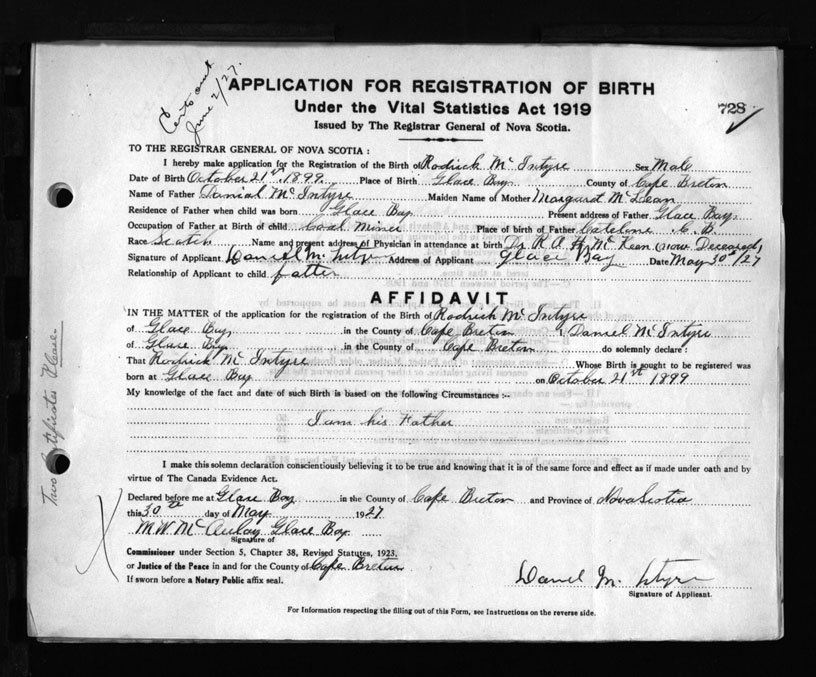 Certs out
June 2/27.
APPLICATION FOR REGISTRATION OF BIRTH
Under the Vital Statistics Act 1919
728
Issued by The Registrar General of Nova Scotia.
TO THE REGISTRAR GENERAL OF NOVA SCOTIA :
I hereby make application for the Registration of the Birth of Rodrick Mc Intyre Sex Male
Date of Birth October 21st 1899 Place of Birth Glace Bay County of Cape Breton
Name of Father Danial Mc Intyre Maiden Name of Mother Margaret McLean
Residence of Father when child was born Glace Bay Present address of Father Glace Bay
Occupation of Father at Birth of child Coal Miner Place of birth of Father Catalone C. B.
Race Scotch Name and present address of Physician in attendance at birth Dr R. A. H. McKeen (now Deceased)
Signature of Applicant Daniel Mc Intyre Address of Applicant Glace Bay Date May 30th/27
Relationship of Applicant to child father
AFFIDAVIT
IN THE MATTER of the application for the registration of the Birth of Rodrick Mc Intyre
of Glace Bay in the County of Cape Breton I Daniel Mc Intyre
of Glace Bay in the County of Cape Breton do solemnly declare :
That Rodrick Mc Intyre Whose Birth is sought to be registered was
born at Glace Bay on October 21st 1899
My knowledge of the fact and date of such Birth is based on the following Circumstances :-
I am his Father
I make this solemn declaration conscientiously believing it to be true and knowing that it is of the same force and effect as if made under oath and by
virtue of The Canada Evidence Act.
Declared before me at Glace Bay in the County of Cape Breton and Province of Nova Scotia
this 30th day of May 1927
M. W. McAulay Glace Bay
Signature of
Commissioner under Section 5, Chapter 38, Revised Statutes, 1923.
or Justice of the Peace in and for the County of Cape Breton
If sworn before a Notary Public affix seal.
Daniel Mc Intyre
Signature of Applicant.
For Information respecting the filling out of this Form, see Instructions on the reverse side.
Two Certificates Please